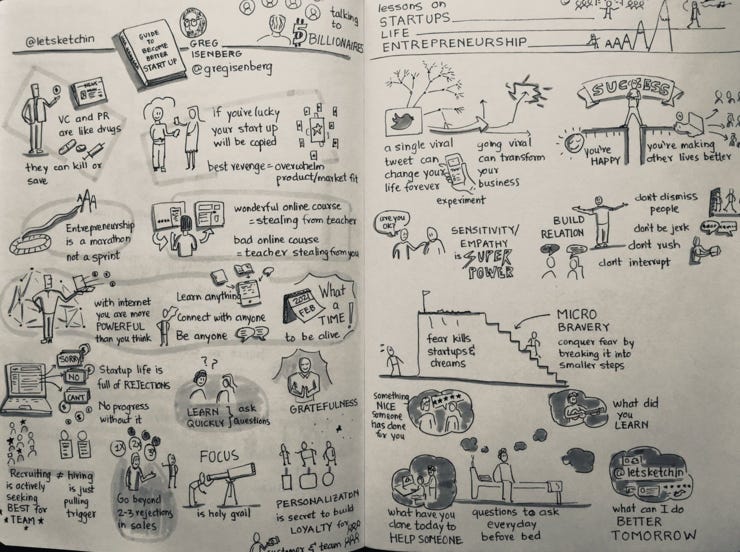 @letsketchin
GUIDE
TO
BECOME
BETTER
START UP
GREG
ISENBERG
@gregisenberg
talking
to
5 BILLIONAIRES
VC and PR
are like drugs
they can kill or
save
if you're lucky
your start up
will be copied
best revenge = overwhelm
product/market fit
AAA
Entrepreneurship
is a marathon
not a sprint
wonderful online course
= stealing from teacher
bad online course
= teacher stealing from you
with internet
you are more
POWERFUL
than you think
Learn anything
Connect with anyone
Be anyone
2021
FEB
What
a
TIME!
to be alive.
SORRY
NO
CAN'T
Startup life is
full of REJECTIONS
No progress
without it
??
LEARN
QUICKLY } ask
questions
GRATEFULNESS
Recruiting ≠ hiring
is actively
seeking
BEST for
*TEAM*
is just
pulling
trigger
Go beyond
2-3 rejections
in sales
FOCUS
is holy grail
PERSONALIZATON
is secret to build
LOYALTY for
customer & team
lessons on
STARTUPS
LIFE
ENTREPRENEURSHIP
AAAA
a single viral
tweet can
change your
life forever
going viral
can transform
your
business
experiment
SUCCESS
you're
HAPPY
you're making
other lives better
are you
OK?
SENSITIVITY/
EMPATHY
is SUPER
POWER
BUILD
RELATION
dont dismiss
people
don't be jerk
dont rush
dont interrupt
fear kills
startups &
dreams
MICRO
BRAVERY
conquer fear by
breaking it into
smaller steps
something
NICE
someone
has done
for you
what did
you
LEARN
what have you
done today to
HELP SOMEONE
questions to ask
everyday
before bed
@letsketchin
what can I do
BETTER
TOMORROW